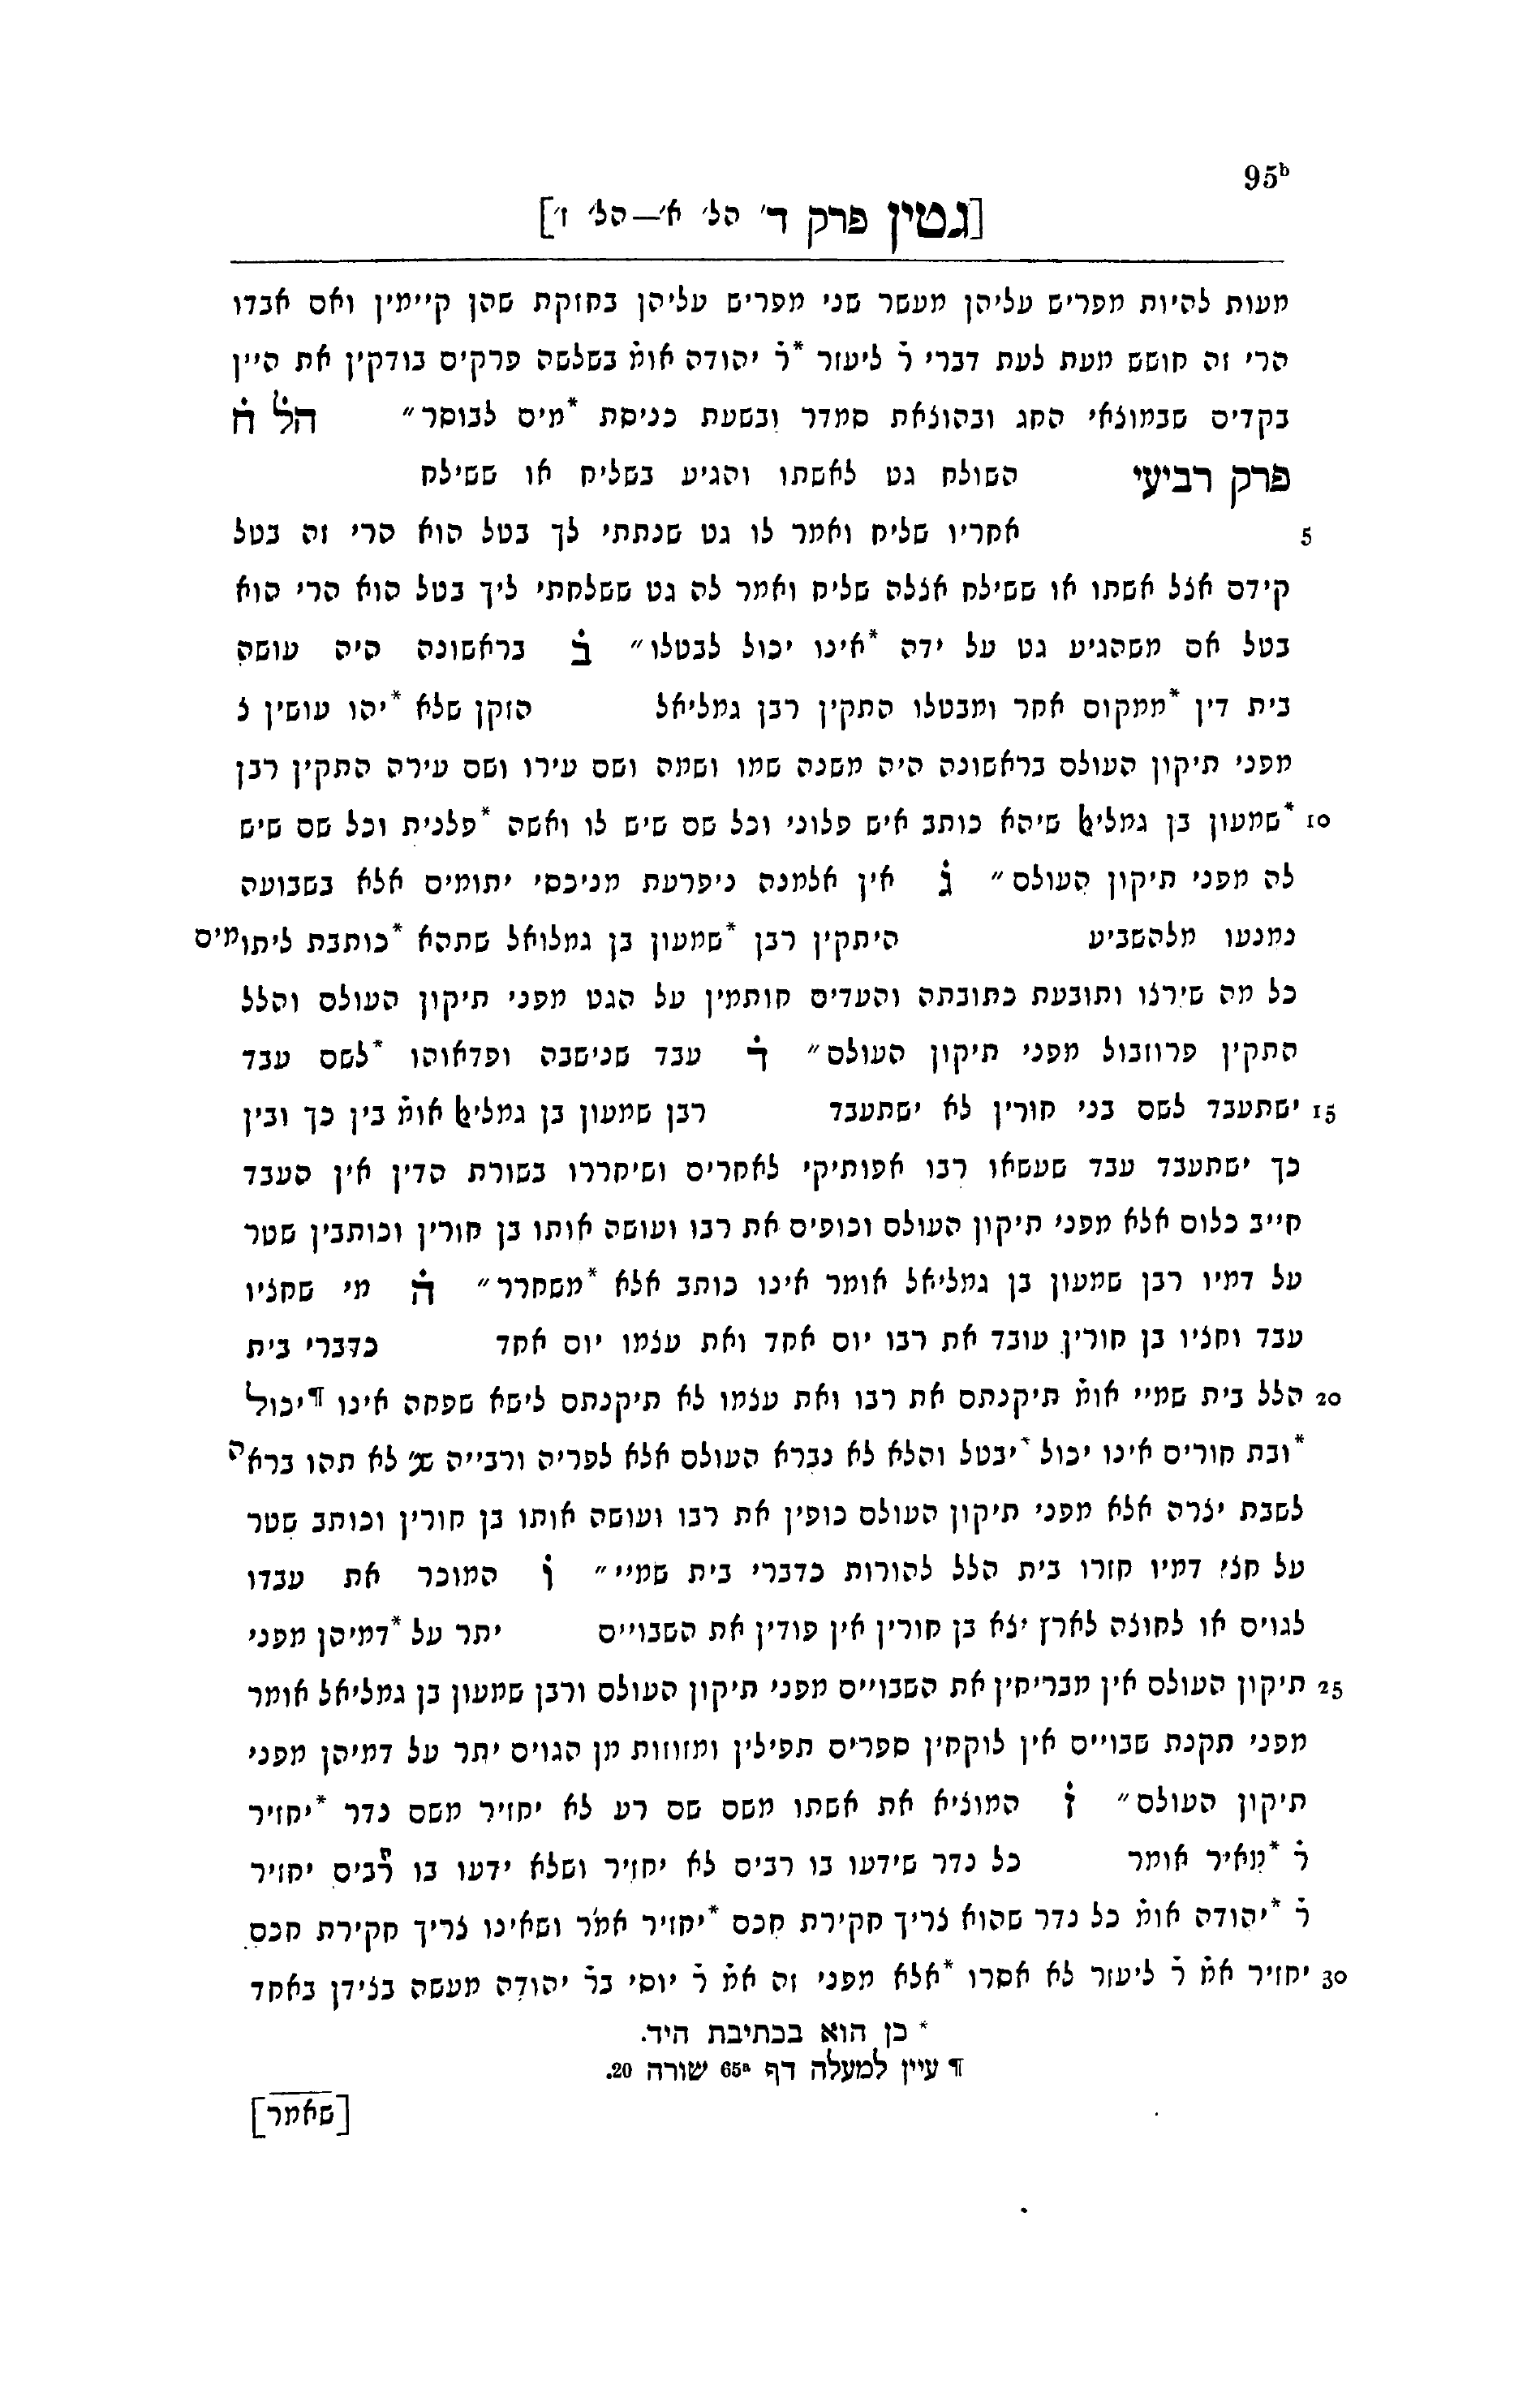 95b
[גטין פרק ד׳ הל׳ א׳—הל׳ ז׳]
מעות להיות מפריש עליהן מעשר שני מפריש עליהן בחזקת שהן קיימין ואם אבדו
הרי זה חושש מעת לעת דברי ר̇ ליעזר *ר̇ יהודה אומ̇ בשלשה פרקים בודקין את היין
בקדים שבמוצאי החג ובהוצאת סמדר ובשעת כניסת *מים לבוסר״ הל̇ ח̇
פרק רביעי השולח גט לאשתו והגיע בשליח או ששילח
5 אחריו שליח ואמר לו גט שנתתי לך בטל הוא הרי זה בטל
קידם אצל אשתו או ששילח אצלה שליח ואמר לה גט ששלחתי ליך בטל הוא הרי הוא
בטל אם משהגיע גט על ידה *אינו יכול לבטלו״ ב̇ בראשונה היה עושה
בית דין *ממקום אחר ומבטלו התקין רבן גמליאל הזקן שלא *יהו עושין כ
מפני תיקון העולם בראשונה היה משנה שמו ושמה ושם עירו ושם עירה התקין רבן
10 *שמעון בן גמליﭏ שיהא כותב איש פלוני וכל שם שיש לו ואשה *פלנית וכל שם שיש
לה מפני תיקון העולם״ ג̇ אין אלמנה ניפרעת מניכסי יתומים אלא בשבועה
נמנעו מלהשביע היתקין רבן *שמעון בן גמלואל שתהא *כותבת ליתומים
כל מה שירצו ותובעת כתובתה והעדים חותמין על הגט מפני תיקון העולם והלל
התקין פרוזבול מפני תיקון העולם״ ד̇ עבד שנישבה ופדאוהו *לשם עבד
15 ישתעבד לשם בני חורין לא ישתעבד רבן שמעון בן גמליﭏ אומ̇ בין כך ובין
כך ישתעבד עבד שעשאו רבו אפותיקי לאחרים ושיחררו בשורת הדין אין העבד
חייב כלום אלא מפני תיקון העולם וכופים את רבו ועושה אותו בן חורין וכותבין שטר
על דמיו רבן שמעון בן גמליאל אומר אינו כותב אלא *משחרר״ ה̇ מי שחציו
עבד וחציו בן חורין עובד את רבו יום אחד ואת עצמו יום אחד כדברי בית
20 הלל בית שמיי אומ̇ תיקנתם את רבו ואת עצמו לא תיקנתם לישא שפחה אינו ¶יכול
*ובת חורים אינו יכול *יבטל והלא לא נברא העולם אלא לפריה ורבייה שנ׳ לא תהו בראה
לשבת יצרה אלא מפני תיקון העולם כופין את רבו ועושה אותו בן חורין וכותב שטר
על חצי דמיו חזרו בית הלל להורות כדברי בית שמיי״ ו̇ המוכר את עבדו
לגוים או לחוצה לארץ יצא בן חורין אין פודין את השבויים יתר על *דמיהן מפני
25 תיקון העולם אין מבריחין את השבויים מפני תיקון העולם ורבן שמעון בן גמליאל אומר
מפני תקנת שבויים אין לוקחין ספרים תפילין ומזוזות מן הגוים יתר על דמיהן מפני
תיקון העולם״ ז̇ המוציא את אשתו משם שם רע לא יחזיר משם נדר *יחזיר
ר̇ *מאיר אומר כל נדר שידעו בו רבים לא יחזיר ושלא ידעו בו רבים יחזיר
ר̇ *יהודה אומ̇ כל נדר שהוא צריך חקירת חכם *יחזיר אמ̇ר ושאינו צריך חקירת חכם
30 יחזיר אמ̇ ר̇ ליעזר לא אסרו *אלא מפני זה אמ̇ ר̇ יוסי בר̇ יהודה מעשה בצידן באחד
* כן הוא בכתיבת היד.
¶ עיין למעלה דף 65a שורה 20.
[שאמר]